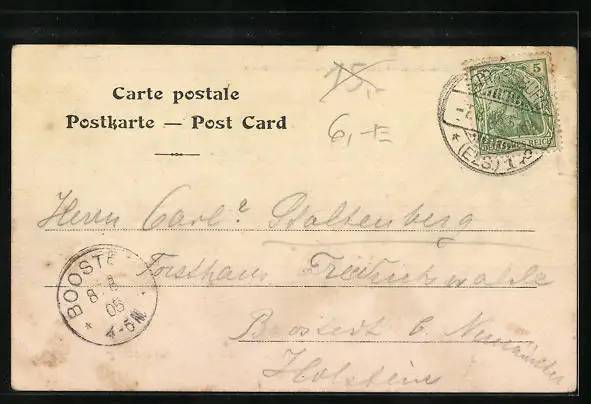 Carte postale
Postkarte — Post Card
15,-
6,-
5
DEUTSCHES REICH
* (ELS.) 1 c
Herrn Carl Stoltenberg
Forsthaus Friedrichswalde
Boostedt b. Neumünster
Holstein
* BOOSTE
8
05
4-5N.